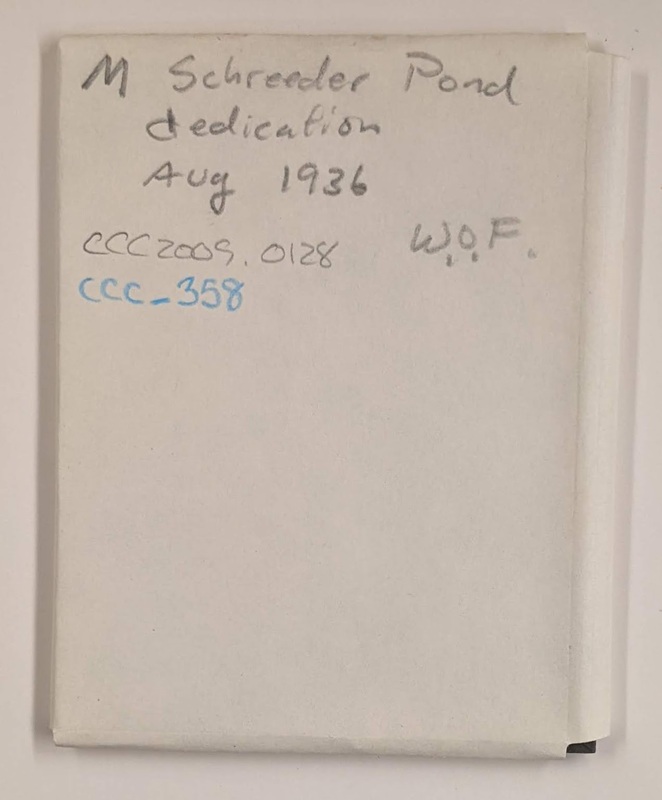 M Schreeder Pond
dedication
Aug 1936
CCC2009.0128 W.O.F.
CCC-358